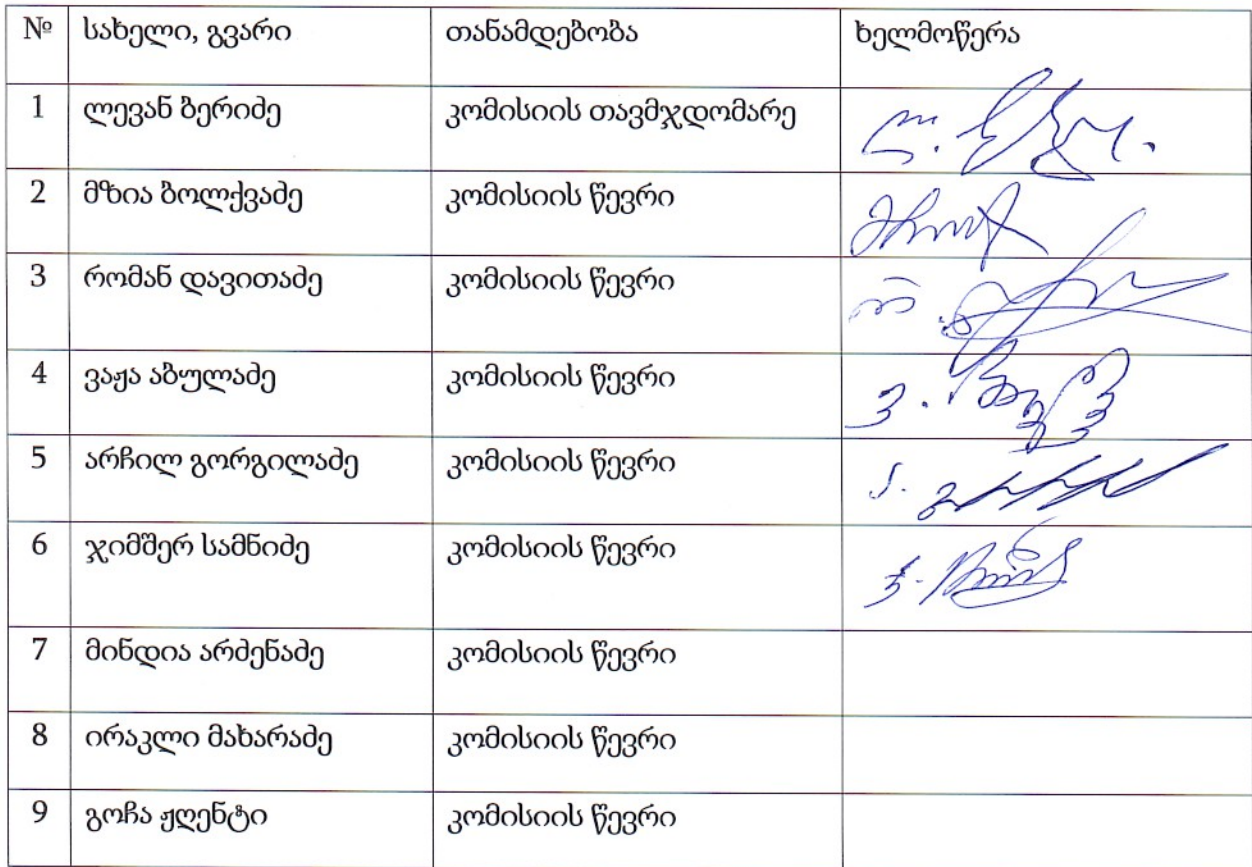 № სახელი, გვარი თანამდებობა ხელმოწერა
1 ლევან ბერიძე კომისიის თავმჯდომარე
2 მზია ბოლქვაძე კომისიის წევრი
3 რომან დავითაძე კომისიის წევრი
4 ვაჟა აბულაძე კომისიის წევრი
5 არჩილ გორგილაძე კომისიის წევრი
6 ჯიმშერ სამნიძე კომისიის წევრი
7 მინდია არძენაძე კომისიის წევრი
8 ირაკლი მახარაძე კომისიის წევრი
9 გოჩა ჟღენტი კომისიის წევრი